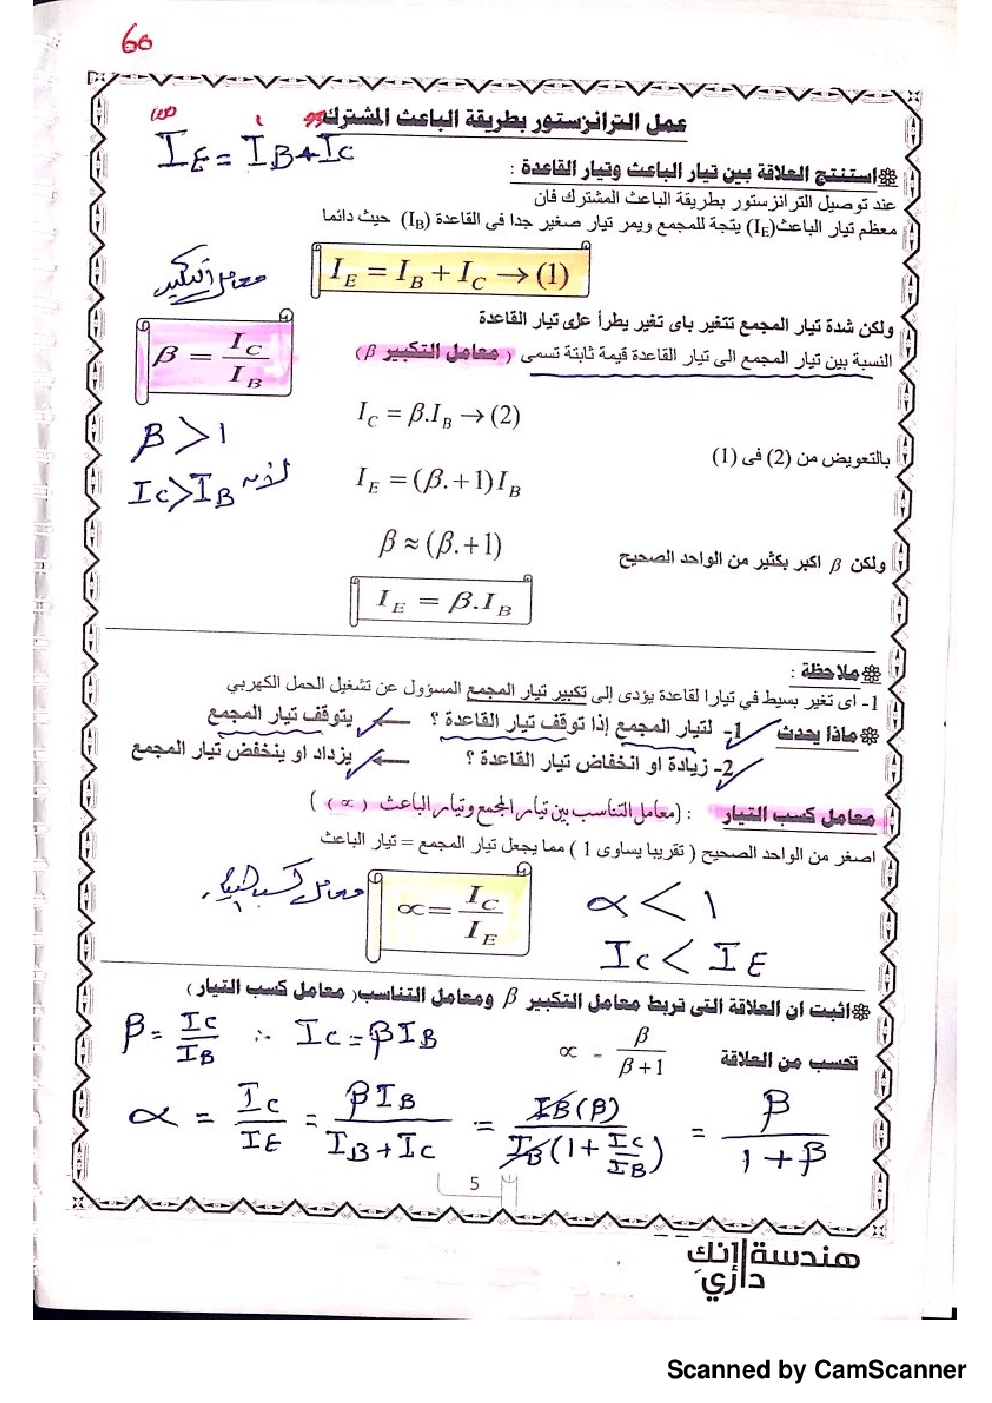 60
عمل الترانزستور بطريقة الباعث المشترك
100 1 99
I_E = I_B + I_C
استنتج العلاقة بين تيار الباعث وتيار القاعدة :
عند توصيل الترانزستور بطريقة الباعث المشترك فان
معظم تيار الباعث(I_E) يتجة للمجمع ويمر تيار صغير جدا فى القاعدة (I_B) حيث دائما
I_E = I_B + I_C → (1)
معامل التكبير
ولكن شدة تيار المجمع تتغير باى تغير يطرأ على تيار القاعدة
النسبة بين تيار المجمع الى تيار القاعدة قيمة ثابتة تسمى ( معامل التكبير β )
β = I_C / I_B
I_C = β.I_B → (2)
β > 1
بالتعويض من (2) فى (1)
I_E = (β.+1) I_B
لأن I_C > I_B
β ≈ (β.+1)
ولكن β اكبر بكثير من الواحد الصحيح
I_E = β.I_B
ملاحظة :
1- اى تغير بسيط في تيارا لقاعدة يؤدى إلى تكبير تيار المجمع المسؤول عن تشغيل الحمل الكهربي
ماذا يحدث 1- لتيار المجمع إذا توقف تيار القاعدة ؟ ← يتوقف تيار المجمع
2- زيادة او انخفاض تيار القاعدة ؟ ← يزداد او ينخفض تيار المجمع
معامل كسب التيار : (معامل التناسب بين تيار المجمع وتيار الباعث ( ∝ ) )
اصغر من الواحد الصحيح ( تقريبا يساوى 1 ) مما يجعل تيار المجمع = تيار الباعث
معامل كسب التيار
∝ = I_C / I_E
α < 1
I_C < I_E
اثبت ان العلاقة التى تربط معامل التكبير β ومعامل التناسب( معامل كسب التيار )
تحسب من العلاقة ∝ = β / β+1
β = I_C / I_B ∴ I_C = β I_B
α = I_C / I_E = β I_B / I_B + I_C = I_B (β) / I_B (1 + I_C / I_B) = β / 1 + β
5
هندسة إنك
داري
Scanned by CamScanner